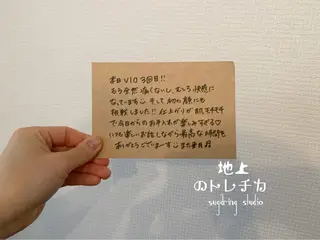 本日VIO 3回目!!
もう全然痛くないし、むしろ快感に
なっています♡ そして初の顔にも
挑戦しました!! 仕上がりが肌モチモチ
で今日からのお手入れが楽しみすぎる♡
いつも楽しいお話しながら最高な時間を
ありがとうございます♡また来月
地上
のトレチカ
sugaring studio